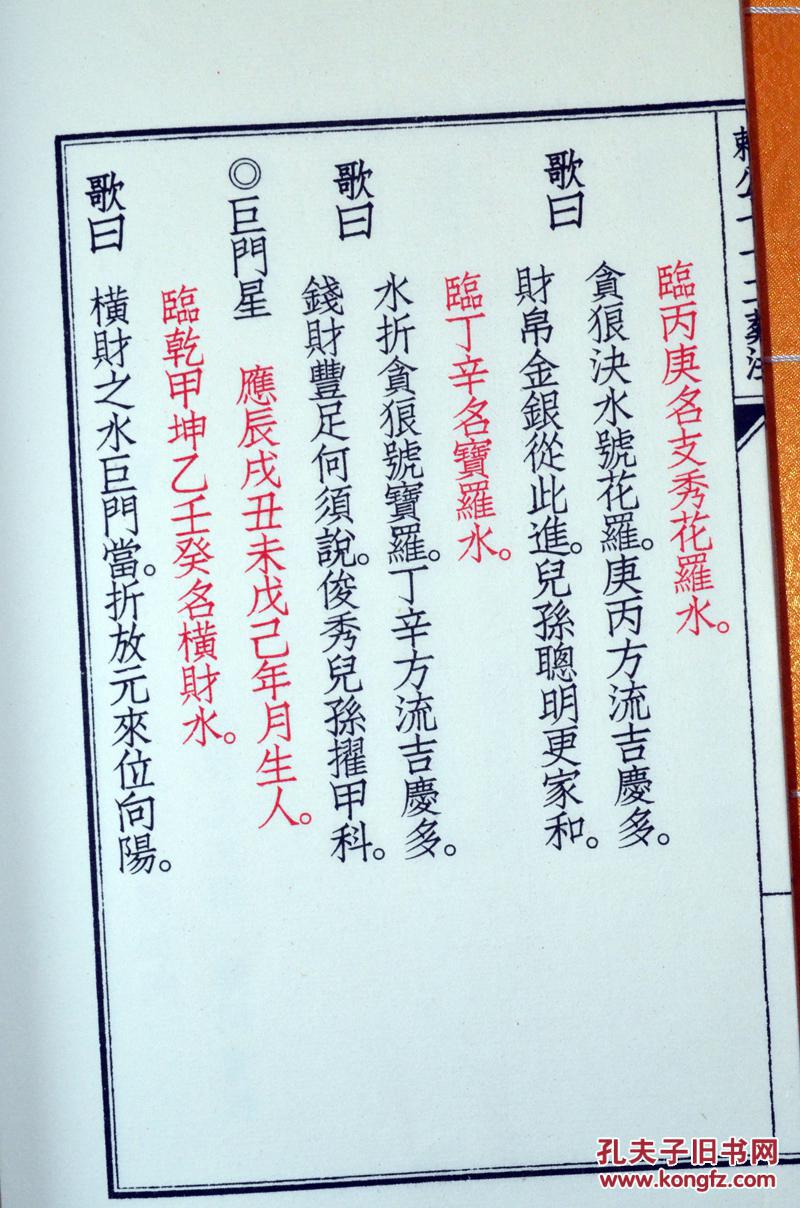 臨丙庚名支秀花羅水。
歌曰
貪狼決水號花羅。庚丙方流吉慶多。
財帛金銀從此進。兒孫聰明更家和。
臨丁辛名寶羅水。
歌曰
水折貪狼號寶羅。丁辛方流吉慶多。
錢財豐足何須說。俊秀兒孫擢甲科。
◎巨門星 應辰戌丑未戊己年月生人。
臨乾甲坤乙壬癸名橫財水。
歌曰 橫財之水巨門當。折放元來位向陽。
孔夫子旧书网
www.kongfz.com